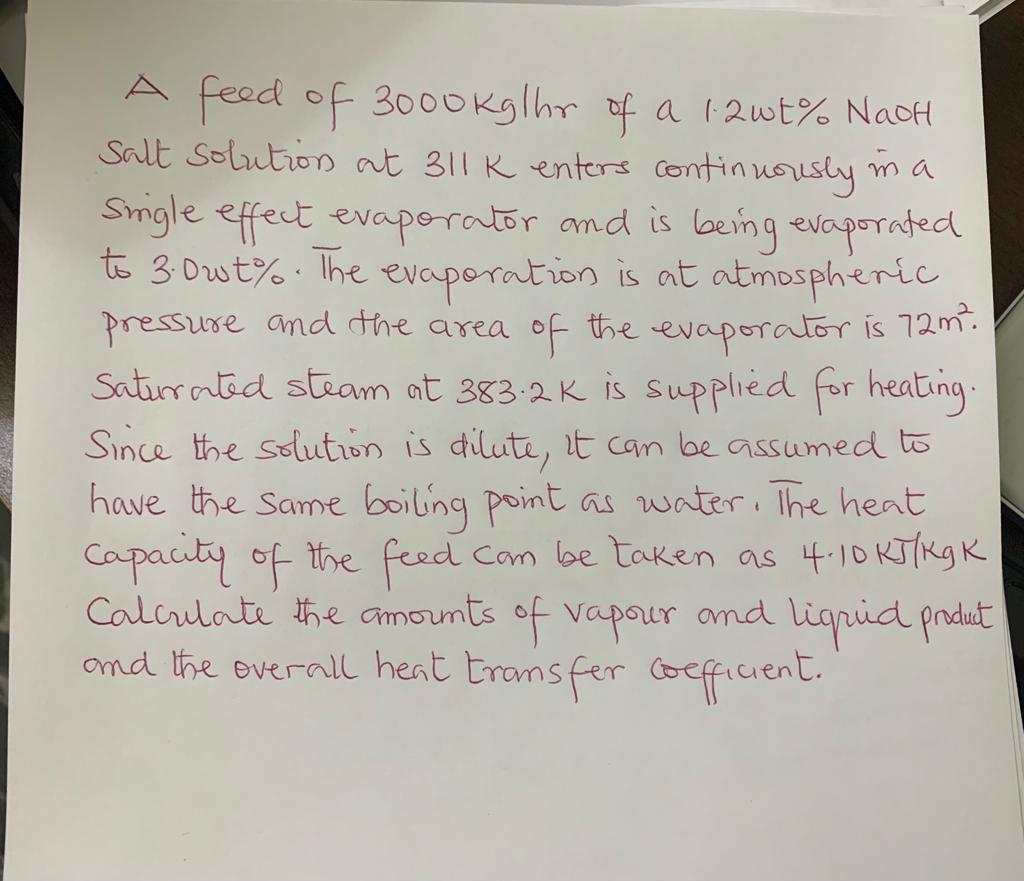 A feed of 3000Kg/hr of a 1.2wt% NaOH
Salt Solution at 311 K enters continuously in a
Single effect evaporator and is being evaporated
to 3.0wt%. The evaporation is at atmospheric
pressure and the area of the evaporator is 72m².
Saturated steam at 383.2K is supplied for heating.
Since the solution is dilute, it can be assumed to
have the same boiling point as water. The heat
Capacity of the feed can be taken as 4.10 KJ/Kg K
Calculate the amounts of vapour and liquid product
and the overall heat transfer coefficient.